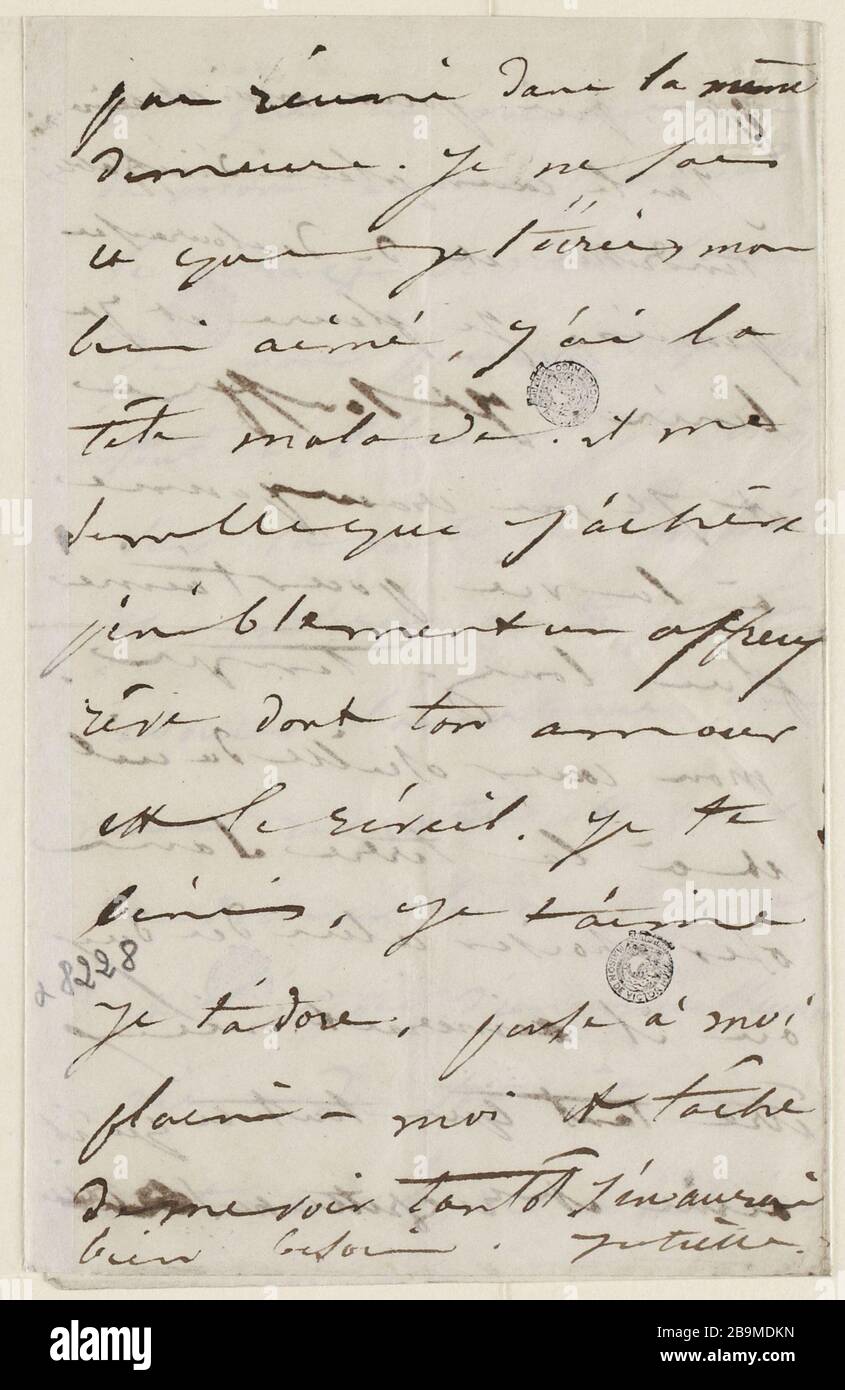 pas réuni dans la même
demeure. Je ne sais
ce que je t'écris, mon
bien aimé, j'ai la
tête malade. il me
semble que j'achève
péniblement un affreux
rêve dont ton amour
est le réveil. Je te
bénis, je t'aime
je t'adore, pense à moi
plains-moi et tâche
de me voir tantôt j'en aurai
bien besoin. Juliette.
8228
alamy
Image ID: 2B9MDKN
www.alamy.com